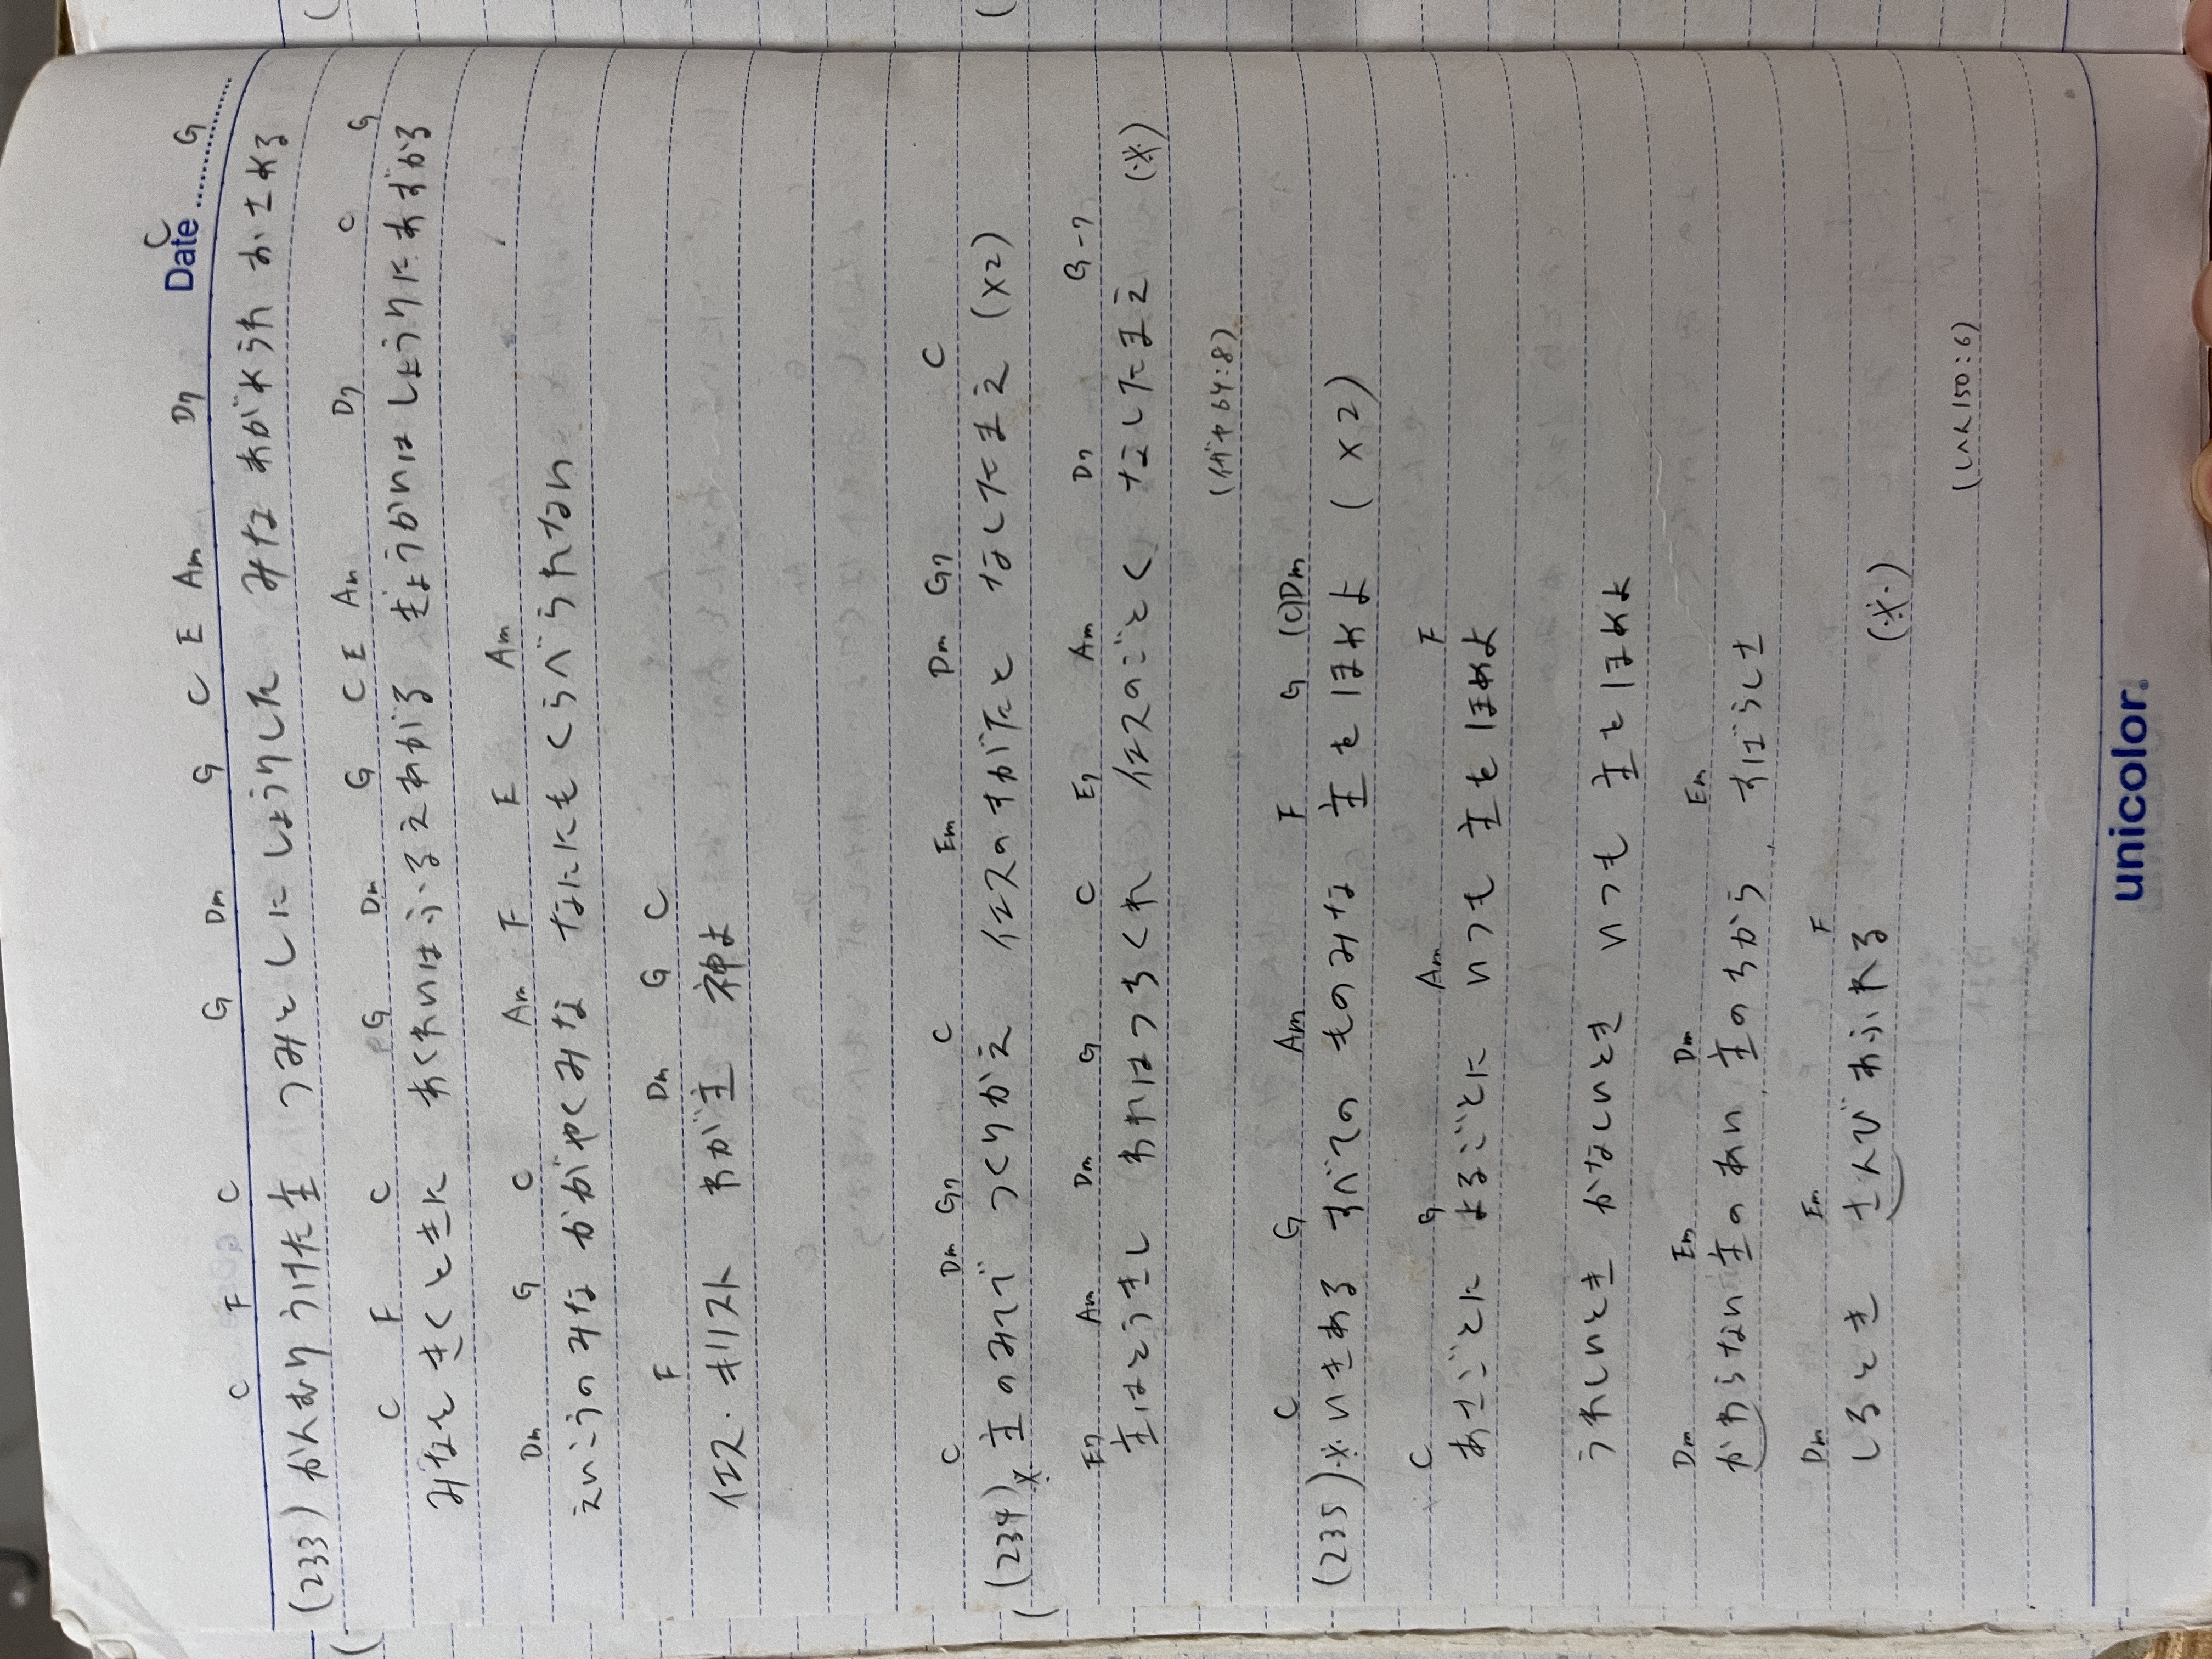 Date
C F C G Dm G C E Am D7 C G
(233) かんむりうけた主 つみとしにしょうりした みな あがめうれ おさめる
C F C G Dm G C E Am D7 C G
みなを きくときに あくれいはふるえあがる きょうかいはしょうりにあずかる
Dm G C Am F E Am
えいこうのみな かがやくみな なににもくらべられない
F Dm G C
イエス・キリスト わが主 神よ
C Dm G7 C Em Dm G7 C
(234) ※ 主のみてで つくりかえ イエスのすがたと なしたまえ (×2)
E7 Am Dm G C E7 Am D7 G-7
主はとうきし われはつちくれ イエスのごとく なしたまえ (※)
(イザヤ 64:8)
C G Am F G (C)Dm
(235) ※ いきある すべての ものみな 主をほめよ (×2)
C G Am F
あさごとに よるごとに いつも 主をほめよ
うれしいとき かなしいとき いつも 主をほめよ
Dm Em Dm Em
かわらない主のあい 主のちから すばらしさ
Dm Em F
しるとき さんびあふれる (※)
(しへん150:6)
unicolor.